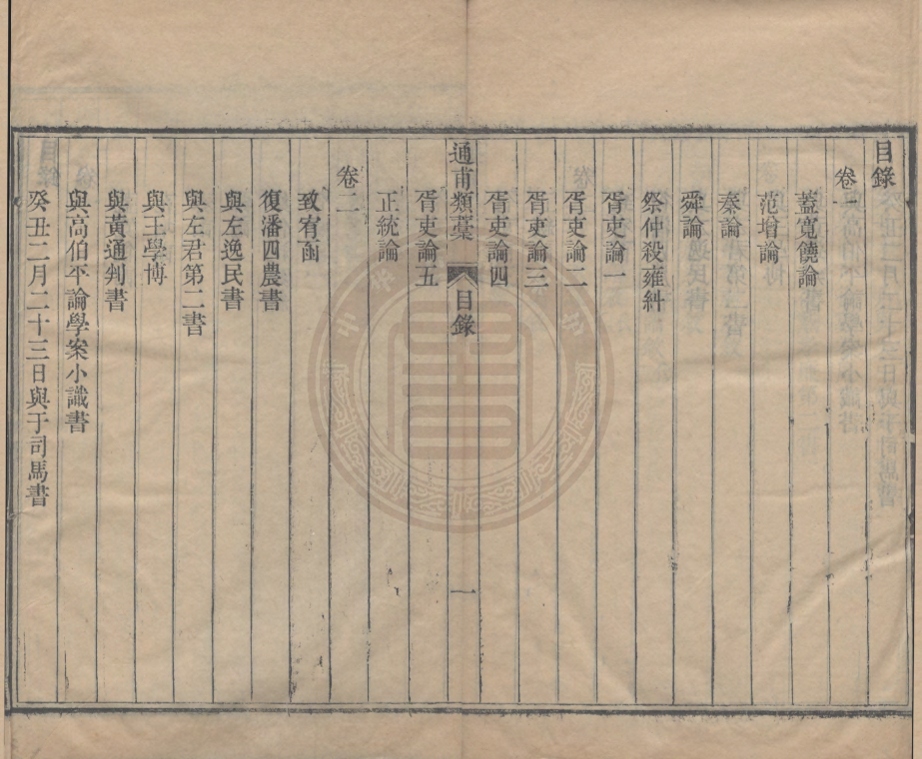 目錄
卷一
蓋寬饒論
范增論
秦論
舜論
祭仲殺雍糾
胥吏論一
胥吏論二
胥吏論三
胥吏論四
通甫類藁
目錄
一
胥吏論五
正統論
卷二
致宥函
復潘四農書
與左逸民書
與左君第二書
與王學博
與黃通判書
與高伯平論學案小識書
癸丑二月二十三日與于司馬書